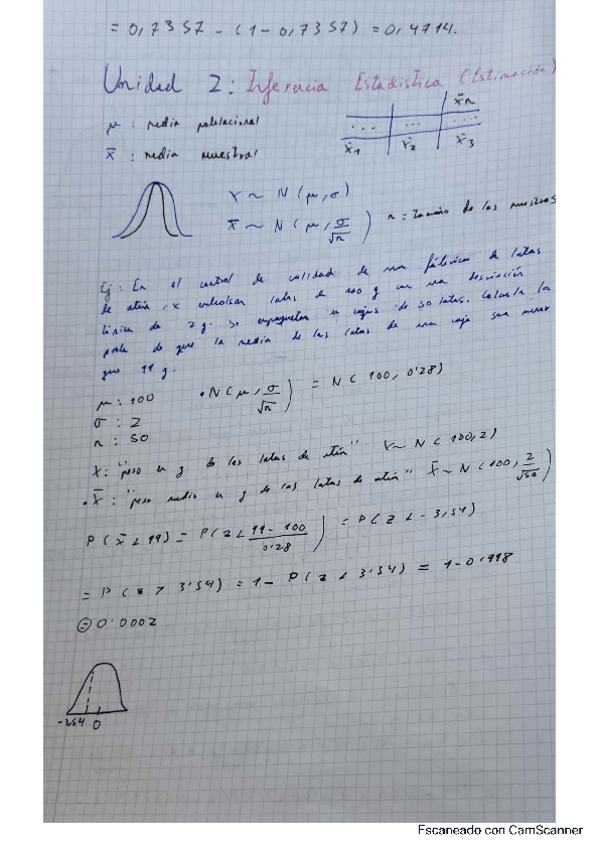 = 0,7357 - (1 - 0,7357) = 0,4714.
Unidad 2: Inferencia Estadística (Estimación)
μ : media poblacional
x̄ : media muestral
x̄n
... .... ....
x̄1 x̄2 x̄3
X ~ N(μ, σ)
x̄ ~ N(μ, σ/√n) n = Tamaño de las muestras
Ej: En el control de calidad de una fábrica de latas
de atún, x latas de 100 g con una desviación
típica de 2 g. Se empaquetan en cajas de 50 latas. Calcula la
de que la media de las latas de una caja sea menor
que 99 g.
μ : 100 • N(μ, σ/√n) = N(100, 0'28)
σ : 2
n : 50
X: "peso en g de las latas de atún" X ~ N(100, 2)
• X̄: "peso medio en g de las latas de atún" x̄ ~ N(100, 2/√50)
P(x̄ < 99) = P(z < 99 - 100 / 0'28) = P(z < -3,54)
= P(z > 3'54) = 1 - P(z < 3'54) = 1 - 0'998
= 0'0002
-3,54 0
Escaneado con CamScanner